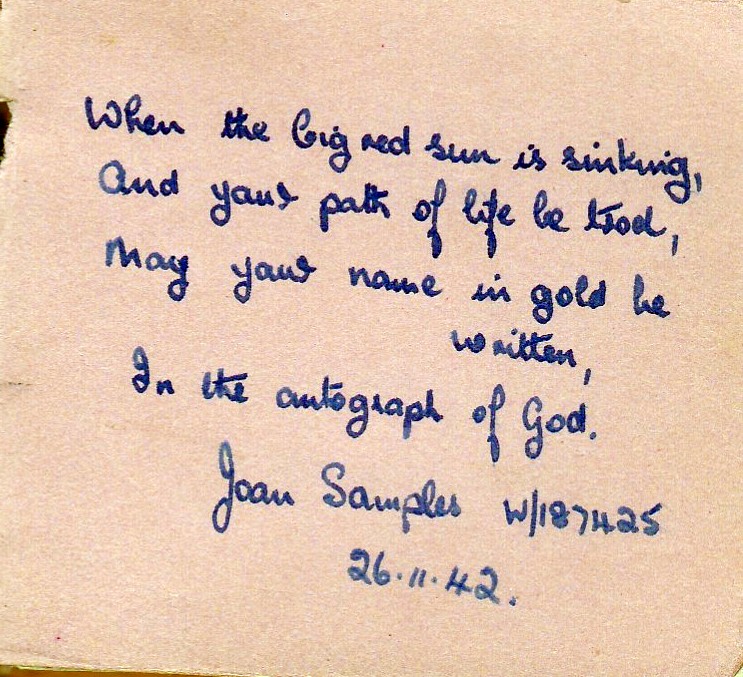 When the big red sun is sinking,
And your path of life be trod,
May your name in gold be
written,
In the autograph of God.
Joan Samples W/187425
26.11.42.